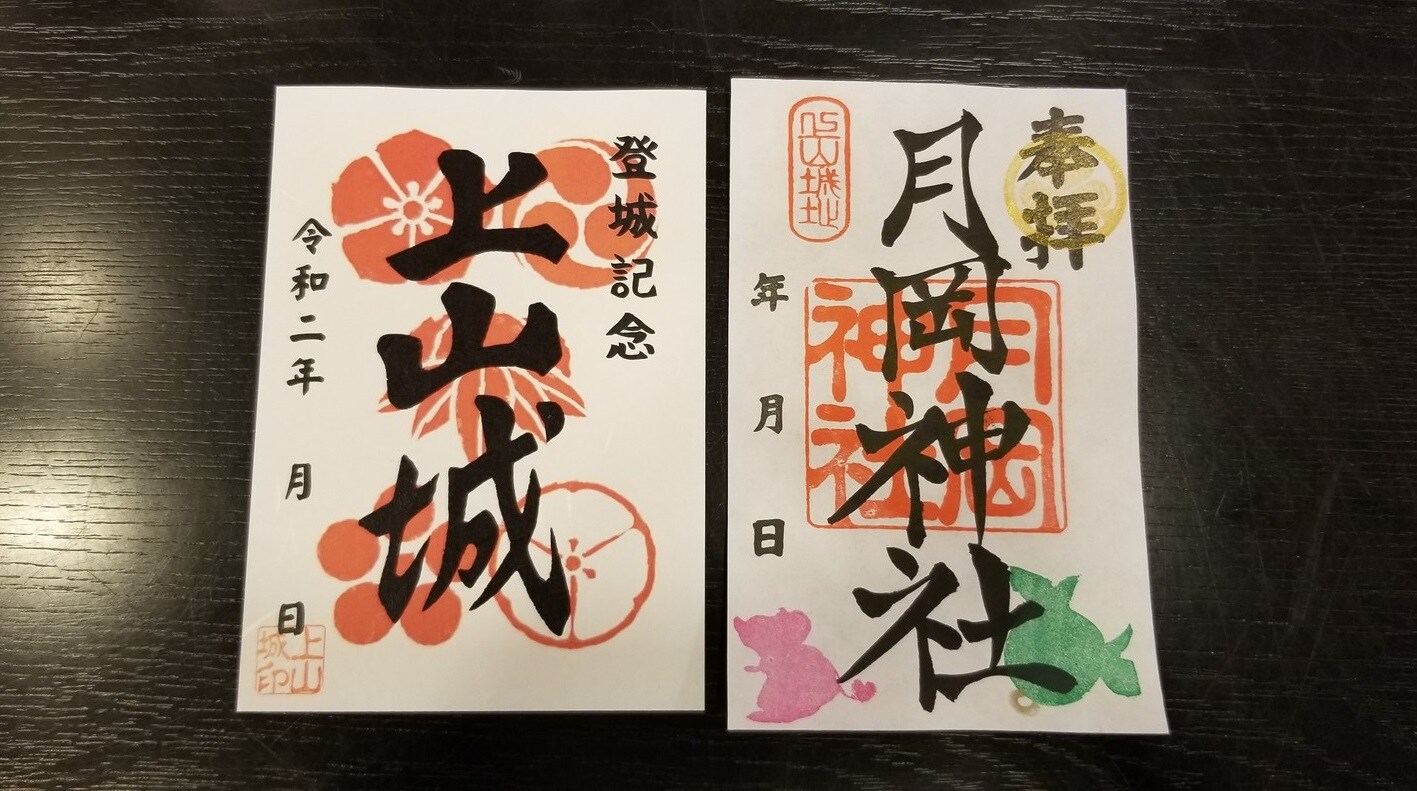 登城記念
上山城
令和二年 月 日
上山
城印
奉拝
月岡神社
月岡
神社
上山城址
年 月 日